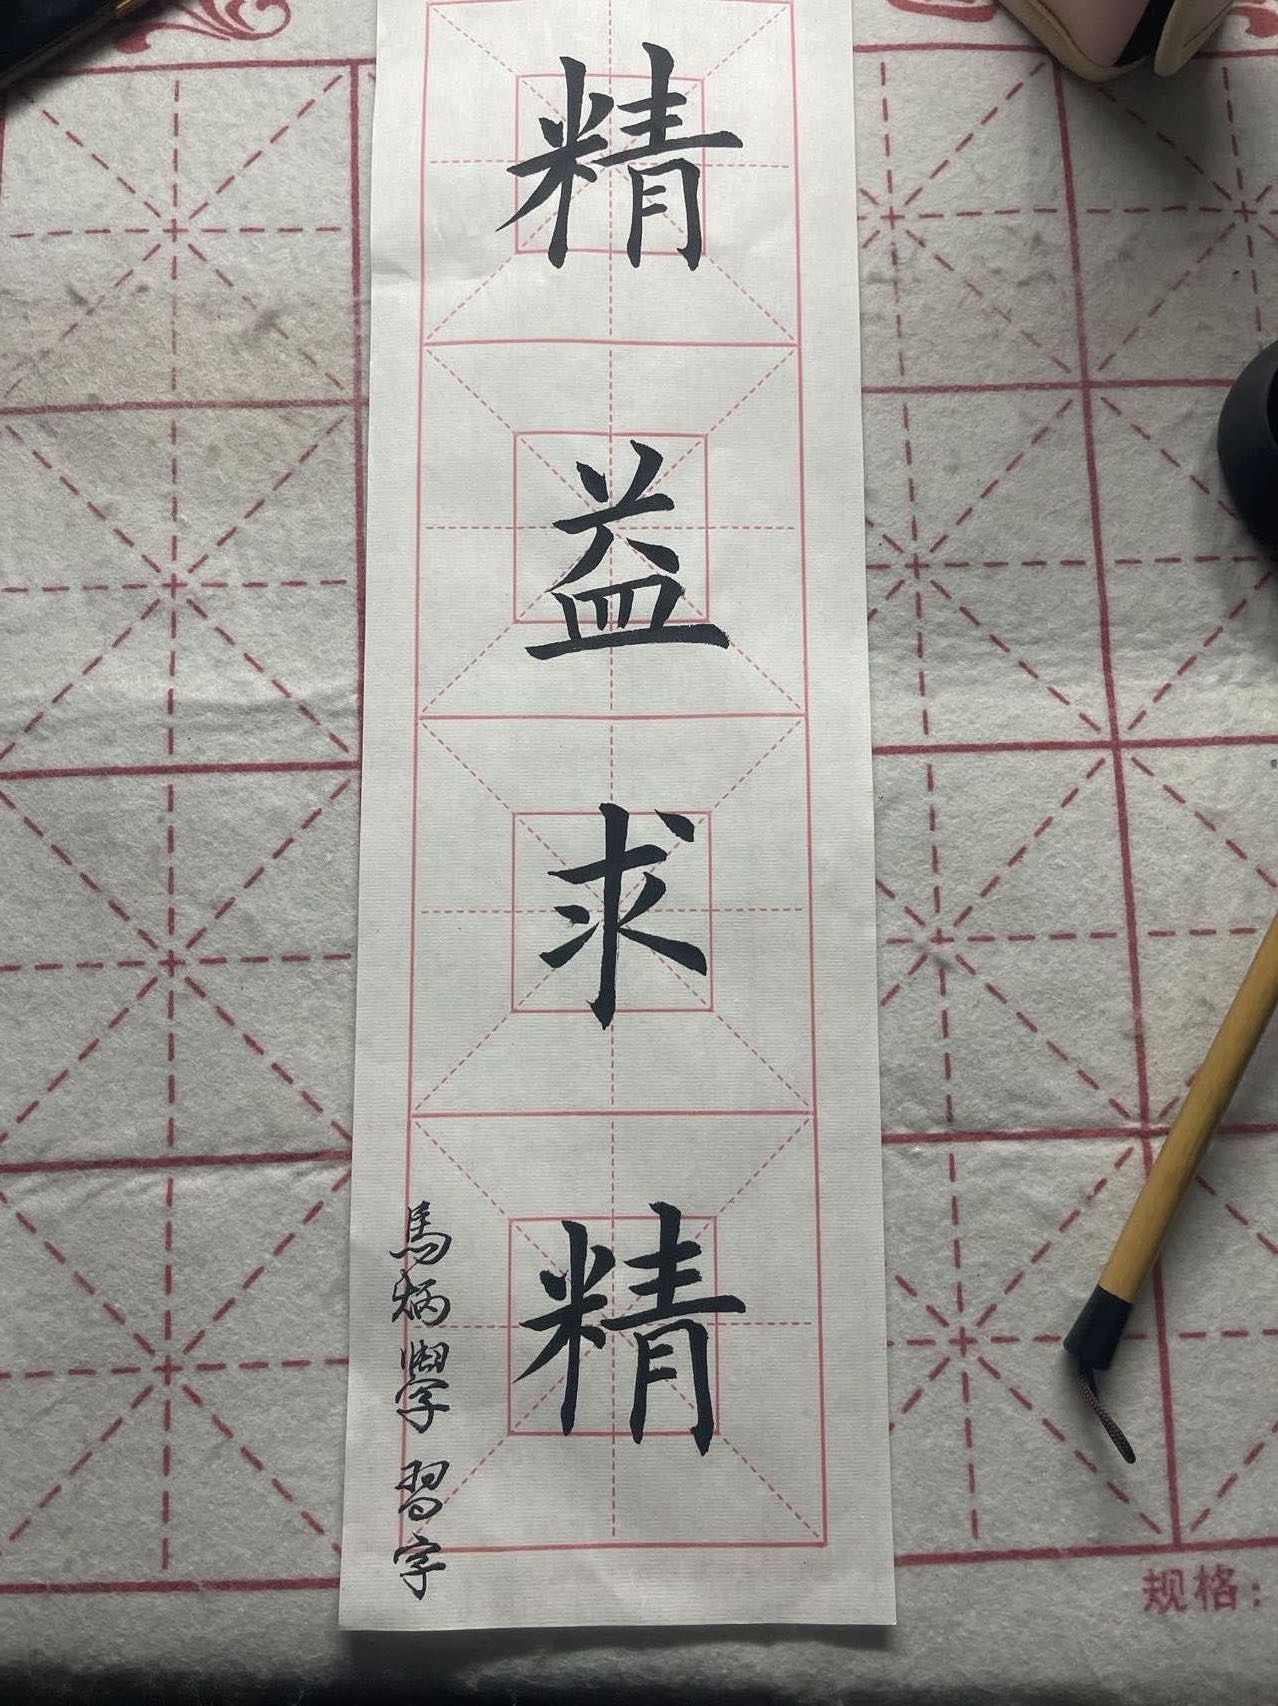 精益求精
馬炳學習字
规格：